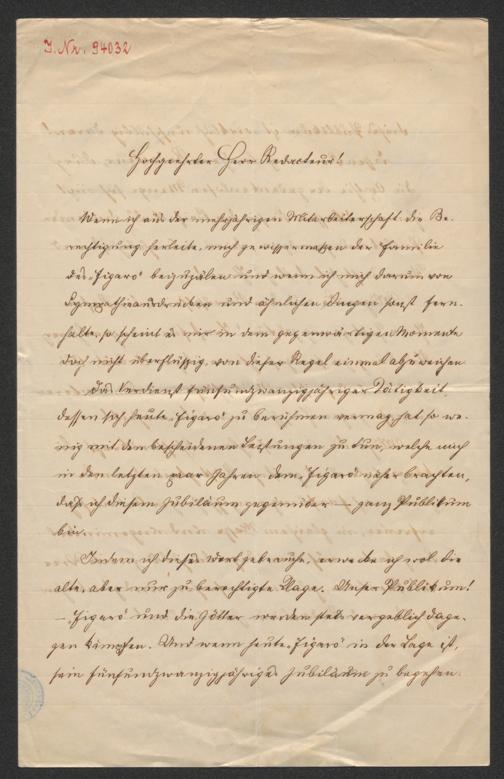 I. Nr. 94032
Hochgeehrter Herr Redacteur!
Wenn ich aus der mehrjährigen Mitarbeiterschaft die Be-
rechtigung herleite, mich gewissermaßen der Familie
des „Figaro“ beizuzälen und wenn ich mich darum von
Sympathieausdrücken und ähnlichen Dingen sonst fern-
halte, so scheint es mir in dem gegenwärtigen Momente
doch nicht überflüssig, von dieser Regel einmal abzuweichen.
Das Verdienst fünfundzwanzigjähriger Tätigkeit,
dessen sich heute „Figaro“ zu berühmen vermag, hat so we-
nig mit den bescheidenen Leistungen zu tun, welche mich
in den letzten paar Jahren dem „Figaro“ näher brachten,
daß ich diesem Jubiläum gegenüber — ganz Publikum
bin.
Indem ich dieses Wort gebrauche, erwecke ich wol die
alte, aber nur zu berechtigte Klage. Unser Publikum!
— „Figaro“ und die Götter werden stets vergeblich dage-
gen kämpfen. Und wenn heute „Figaro“ in der Lage ist,
sein fünfundzwanzigjähriges Jubiläum zu begehen